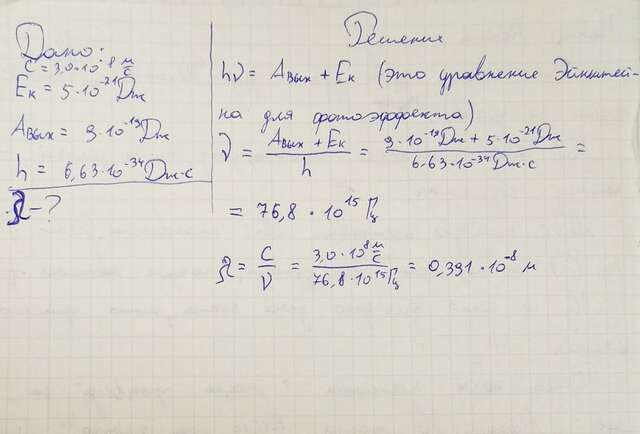 Дано:
c = 3,0·10⁸ м/с
Eк = 5·10⁻²¹ Дж
Aвых = 9·10⁻¹⁹ Дж
h = 6,63·10⁻³⁴ Дж·с
λ - ?
Решение
hν = Aвых + Eк (это уравнение Эйнштей-
на для фотоэффекта)
ν = (Aвых + Eк)/h = (9·10⁻¹⁹ Дж + 5·10⁻²¹ Дж)/(6,63·10⁻³⁴ Дж·с) =
= 76,8 · 10¹⁵ Гц
λ = c/ν = (3,0·10⁸ м/с)/(76,8·10¹⁵ Гц) = 0,391·10⁻⁸ м